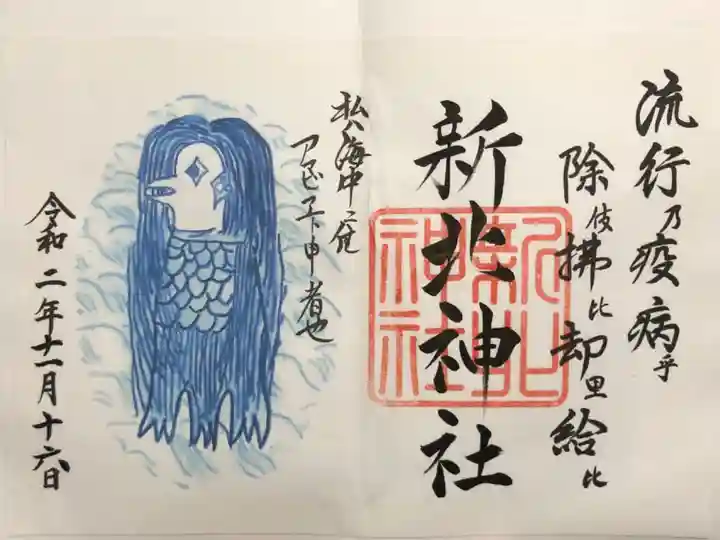 流行乃疫病乎
除伎拂比却里給比
新北神社
新北神社
私ハ海中ニ住
アマビエト申者也
令和二年十一月十六日